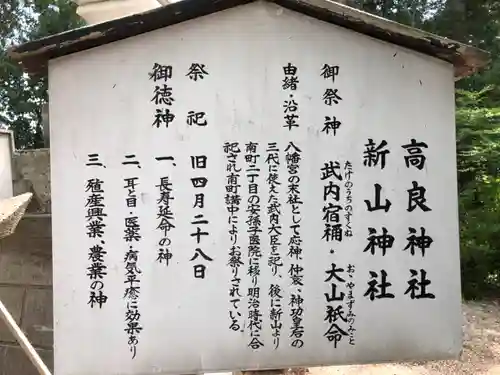 高良神社
新山神社
御祭神　武内宿禰・大山祇命
たけのうちのすくね
おおやまずみのみこと
由緒・沿革
八幡宮の末社として応神、仲哀、神功皇后の
三代に使えた武内大臣を祀り、後に新山より
南町二丁目の安孫子医院に移り明治時代に合
祀され南町講中によりお祭りされている。
祭祀　旧四月二十八日
御徳神
一、長寿延命の神
二、耳と目・医薬・病気平癒に効果あり
三、殖産興業、農業の神